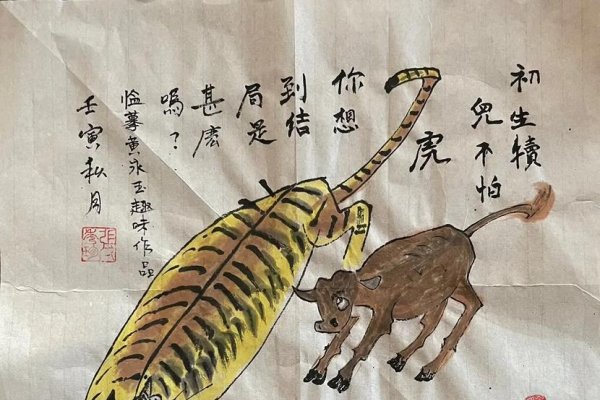 初生犢
兒不怕
虎
你想
到結
局是
甚麽
嗎？
臨摹黄永玉趣味作品
壬寅秋月